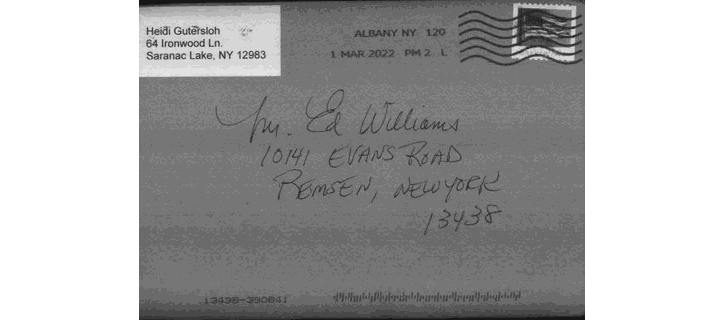 Heidi Gutersloh
64 Ironwood Ln.
Saranac Lake, NY 12983
ALBANY NY 120
1 MAR 2022 PM 2 L
Mr. Ed Williams
10141 EVANS ROAD
REMSEN, NEW YORK
13438
13438-390841